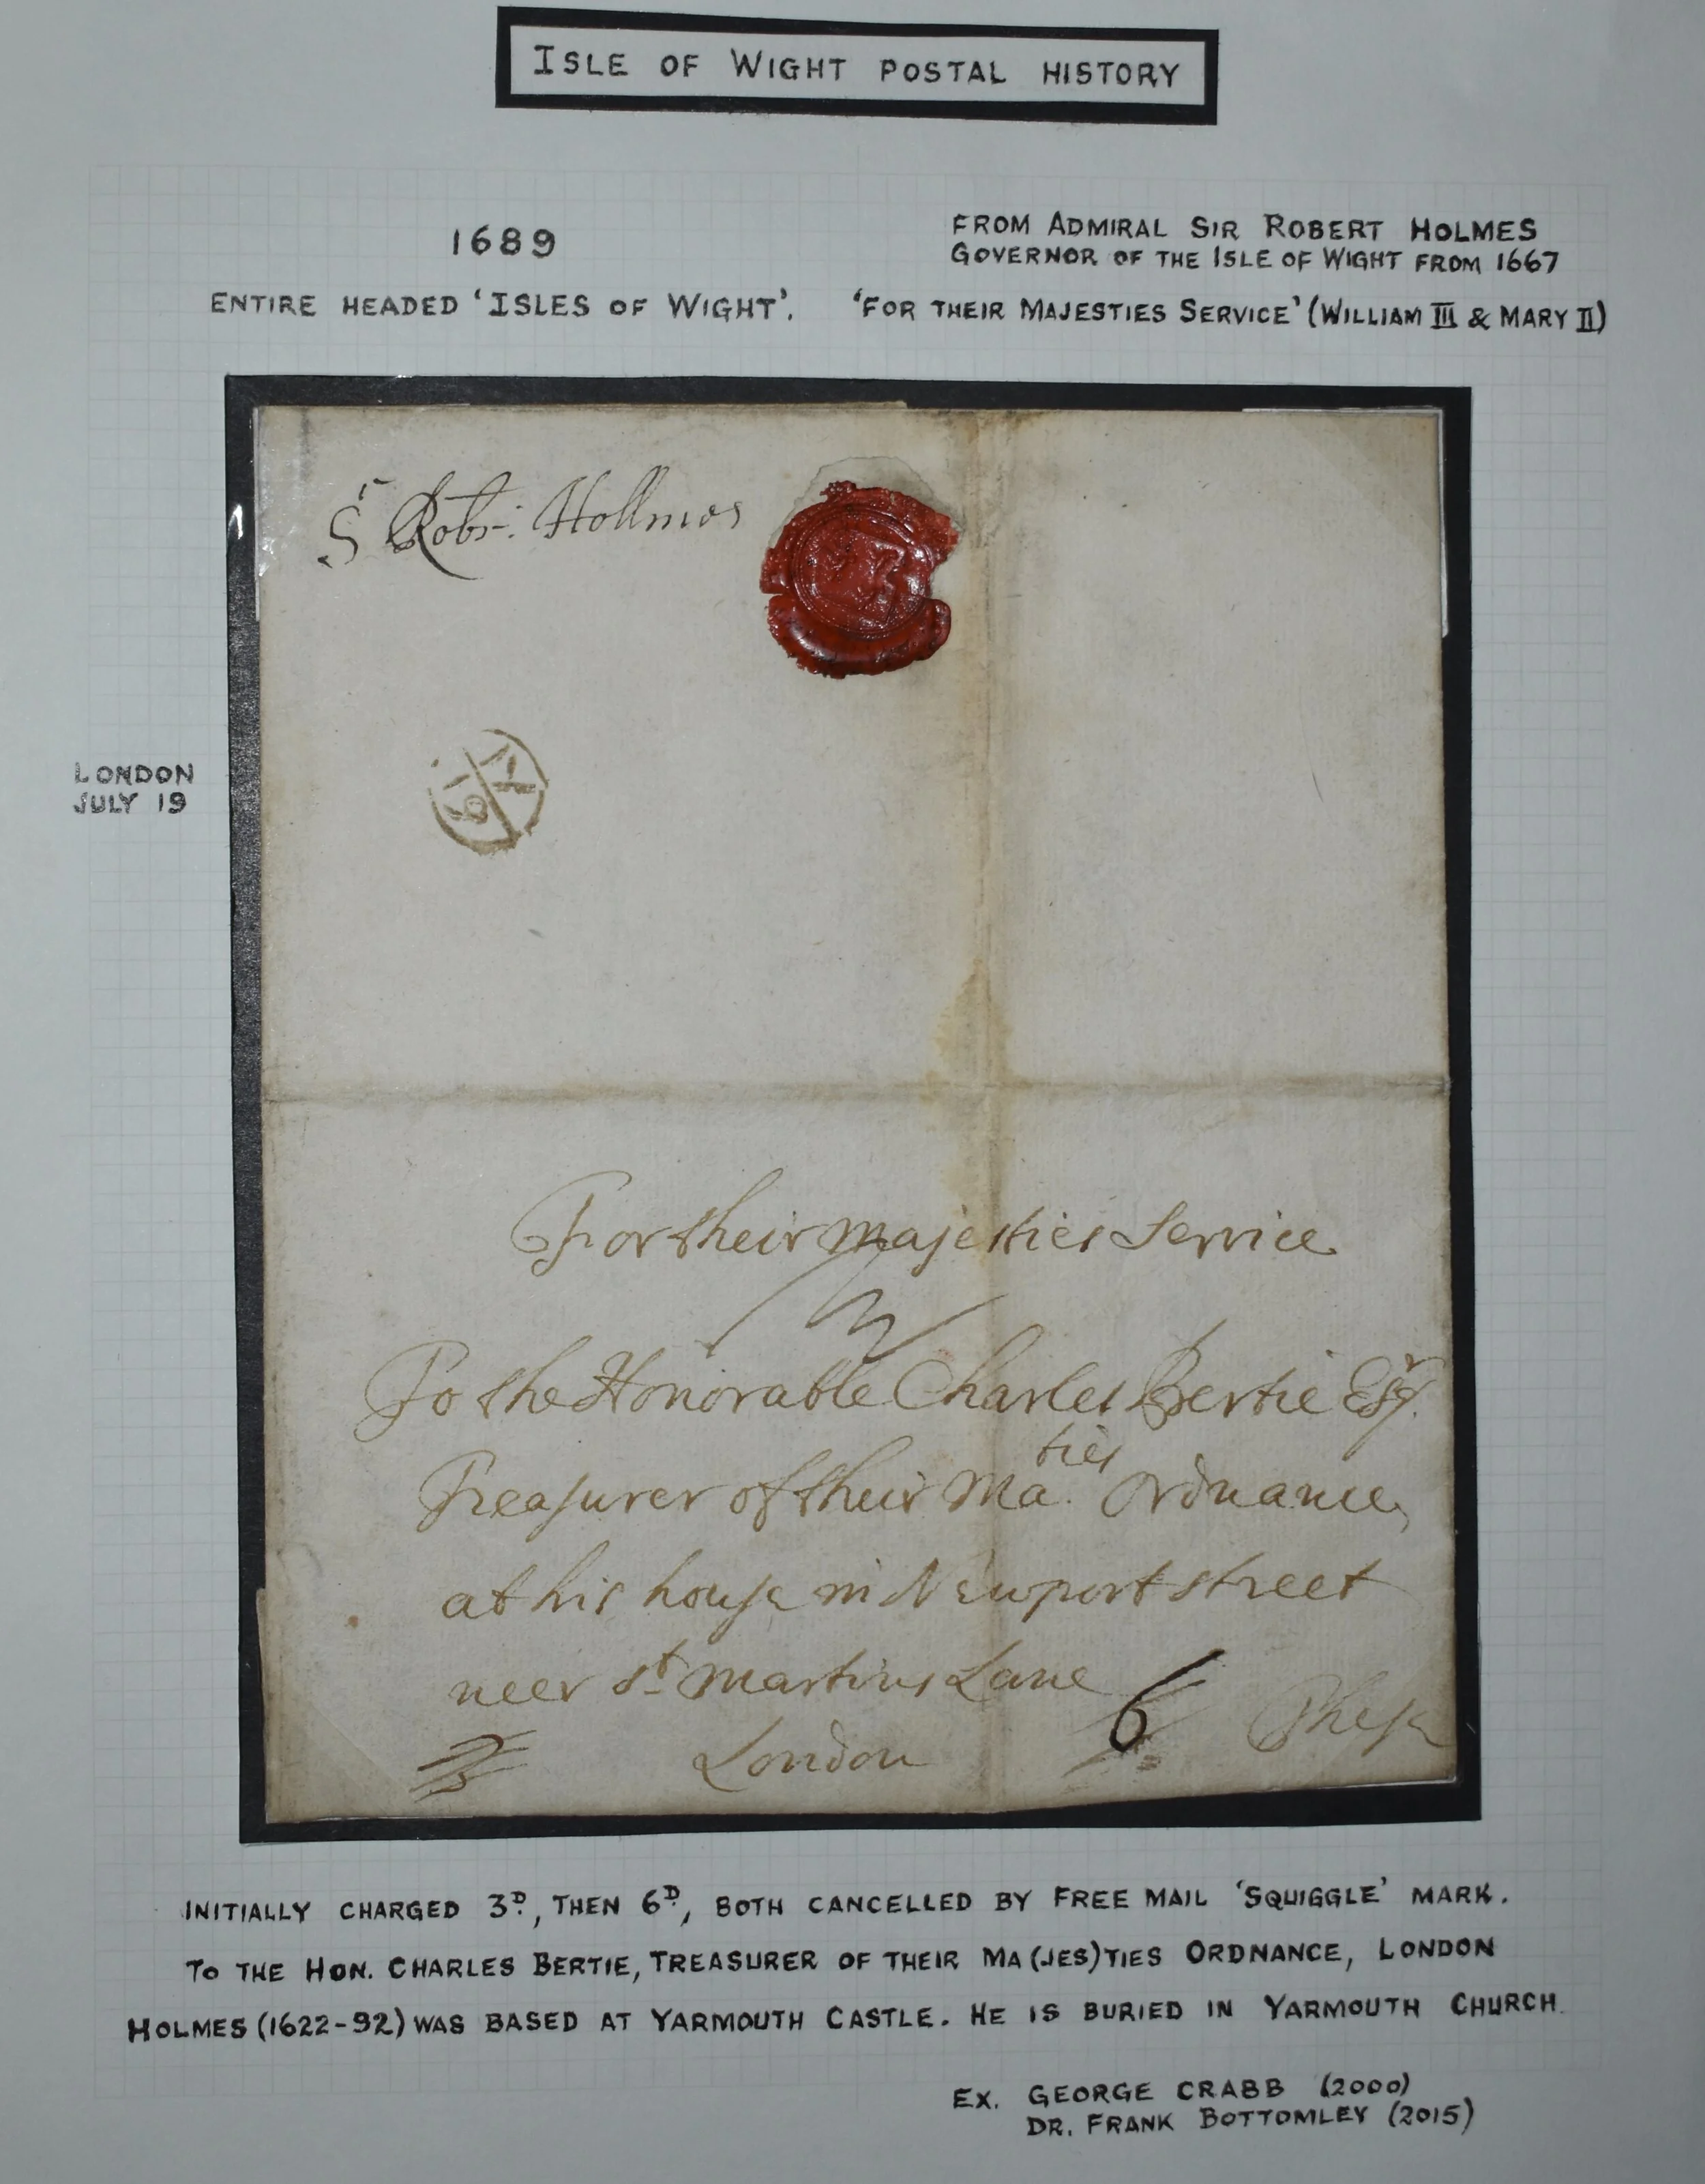 ISLE OF WIGHT POSTAL HISTORY
1689
FROM ADMIRAL SIR ROBERT HOLMES
GOVERNOR OF THE ISLE OF WIGHT FROM 1667
ENTIRE HEADED 'ISLES OF WIGHT'. 'FOR THEIR MAJESTIES SERVICE' (WILLIAM III & MARY II)
Sr Robt: Hollmes
LONDON
JULY 19
For their Majesties Service
To the Honorable Charles Bertie Esqr.
Treasurer of their Ma.ties Ordnance,
at his house in Newport street
neer St Martins Lane
6
London
INITIALLY CHARGED 3D, THEN 6D, BOTH CANCELLED BY FREE MAIL 'SQUIGGLE' MARK.
TO THE HON. CHARLES BERTIE, TREASURER OF THEIR MA(JES)TIES ORDNANCE, LONDON
HOLMES (1622-92) WAS BASED AT YARMOUTH CASTLE. HE IS BURIED IN YARMOUTH CHURCH.
EX. GEORGE CRABB (2000)
DR. FRANK BOTTOMLEY (2015)